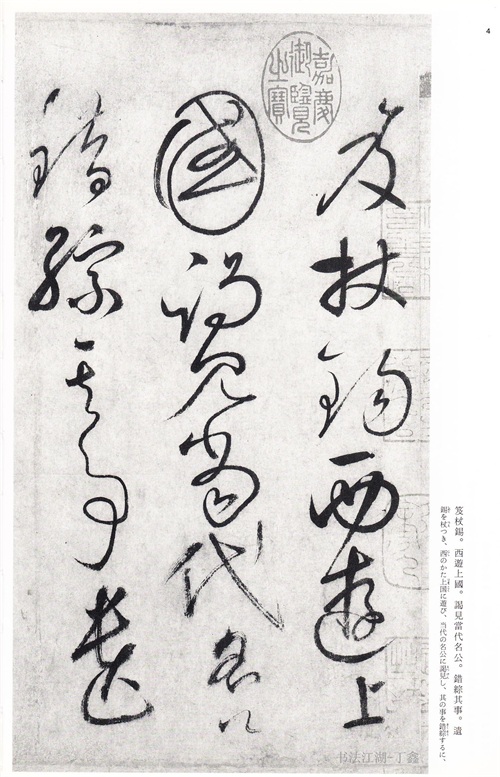 4
嘉慶
御覽
之寶
笈杖錫西遊上
國謁見當代名公
錯綜其事遺
笈杖錫。西遊上國。謁見當代名公。錯綜其事。遺
錫を杖つき、西のかた上国に遊び、当代の名公に謁見し、其の事を錯綜するに、
书法江湖-丁鑫